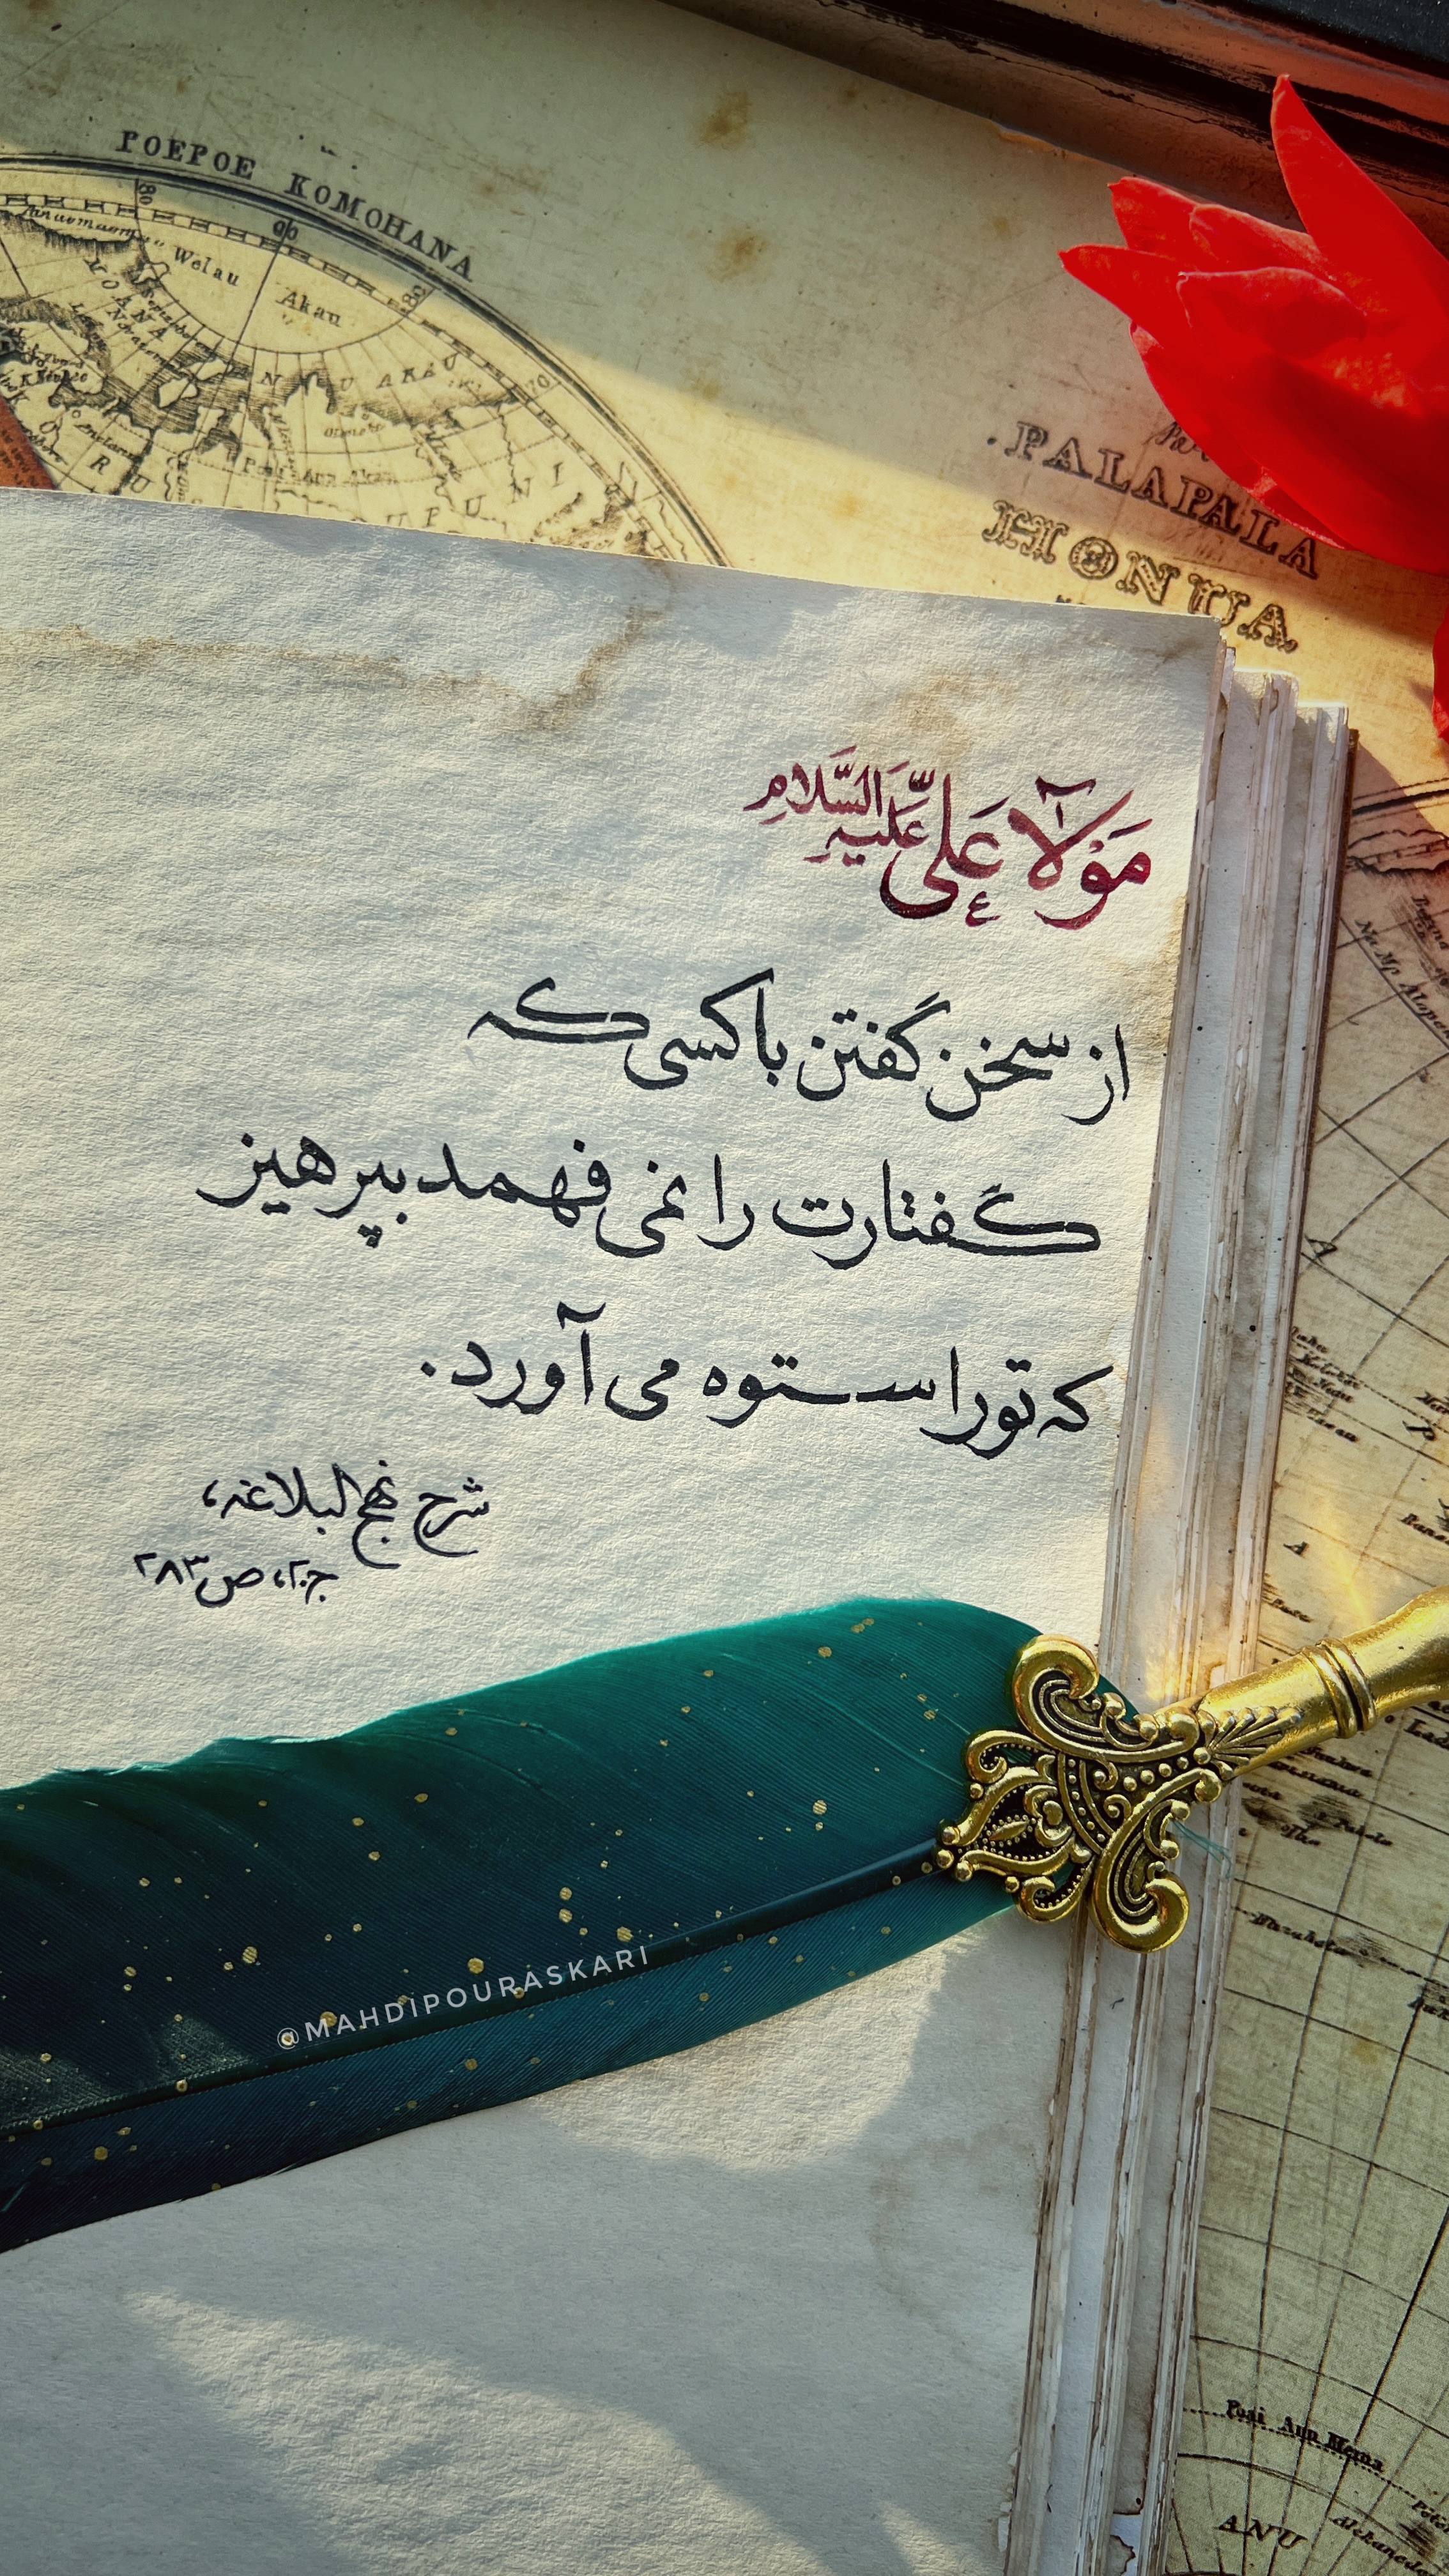 POEPOE KOMOHANA
80 90 80
Welau
Akau
70
Poai Anu Akau
PALAPALA
HONUA
مَوْلٰا عَلِیّ عَلَیهِ السَّلامِ
از سخن گفتن با کسی که
گفتارت را نمی فهمد بپرهیز
که تو را ستوه می آورد.
شرح نهج البلاغه،
ج۲۰، ص۲۸۳
@MAHDIPOURASKARI
Poai Anu Mema
ANU